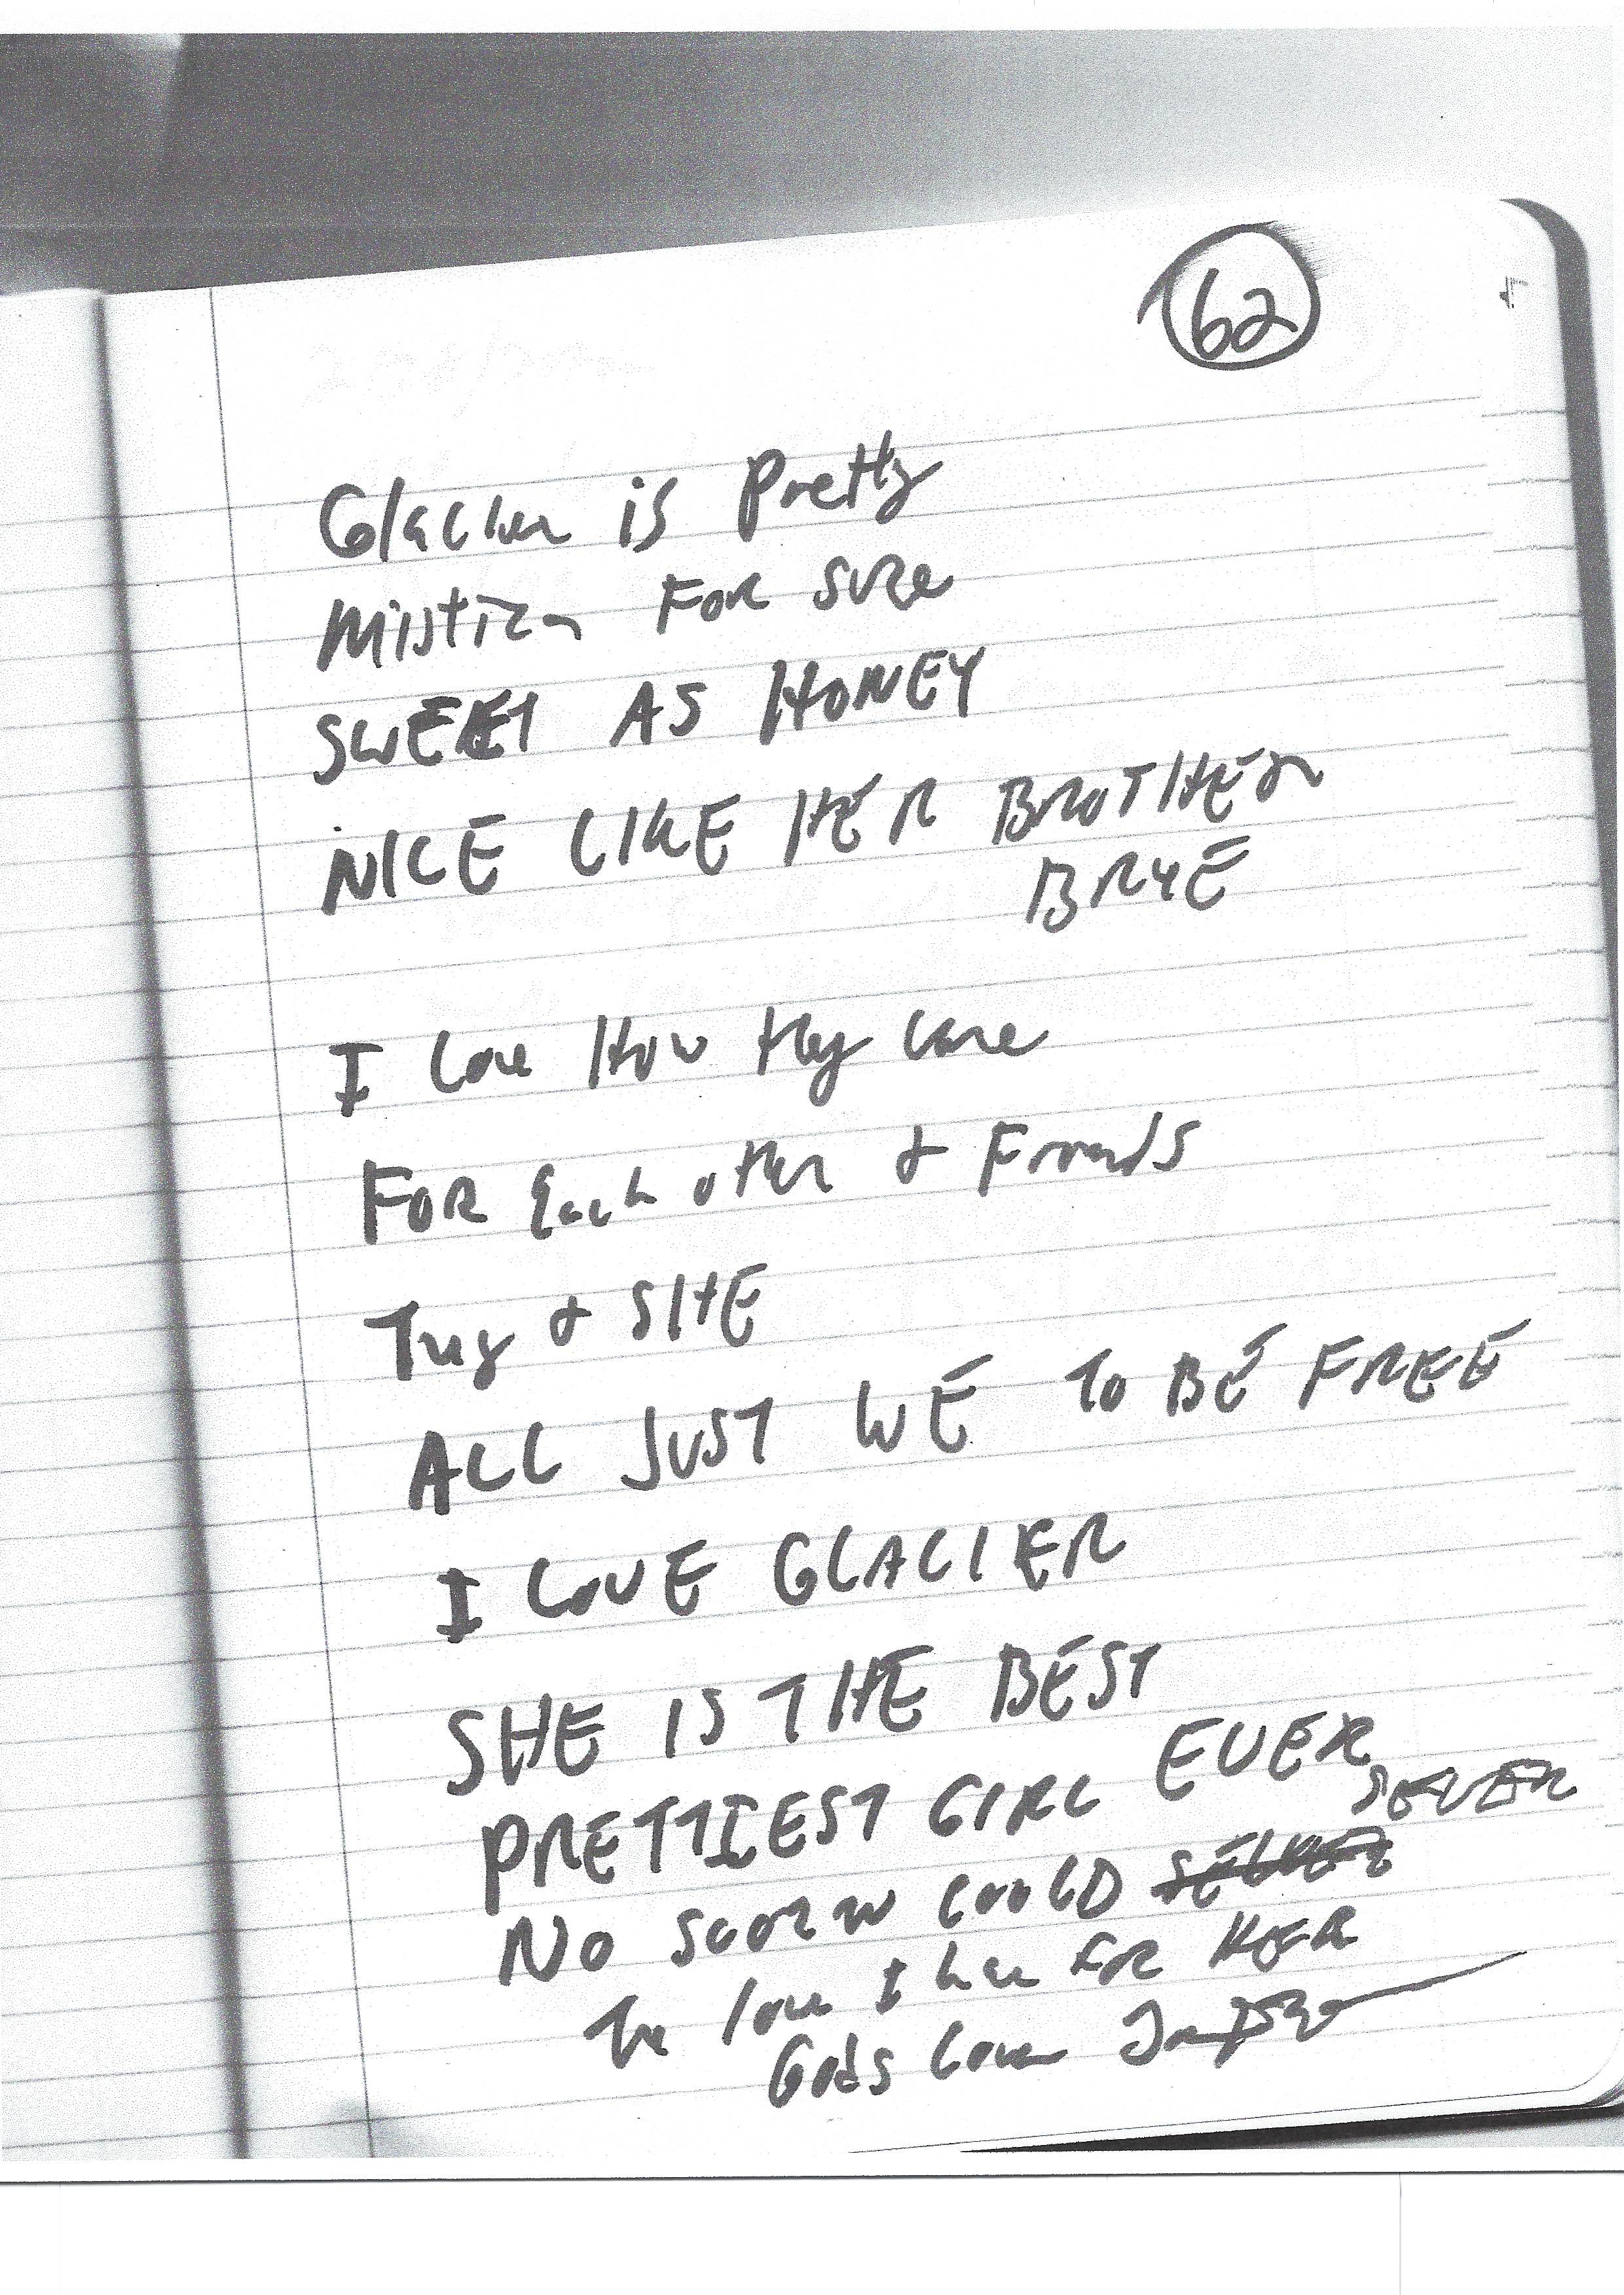 62
Glacier is Pretty
For Sure
SWEET AS HONEY
NICE LIKE HER BROTHER
BRYE
I Love How they care
FOR Each other & Friends
They & SHE
ALL JUST WE TO BE FREE
I LOVE GLACIER
SHE IS THE BEST
PRETTIEST GIRL EVER
SEVER
NO COULD
The love I have FOR HER
Gods Love